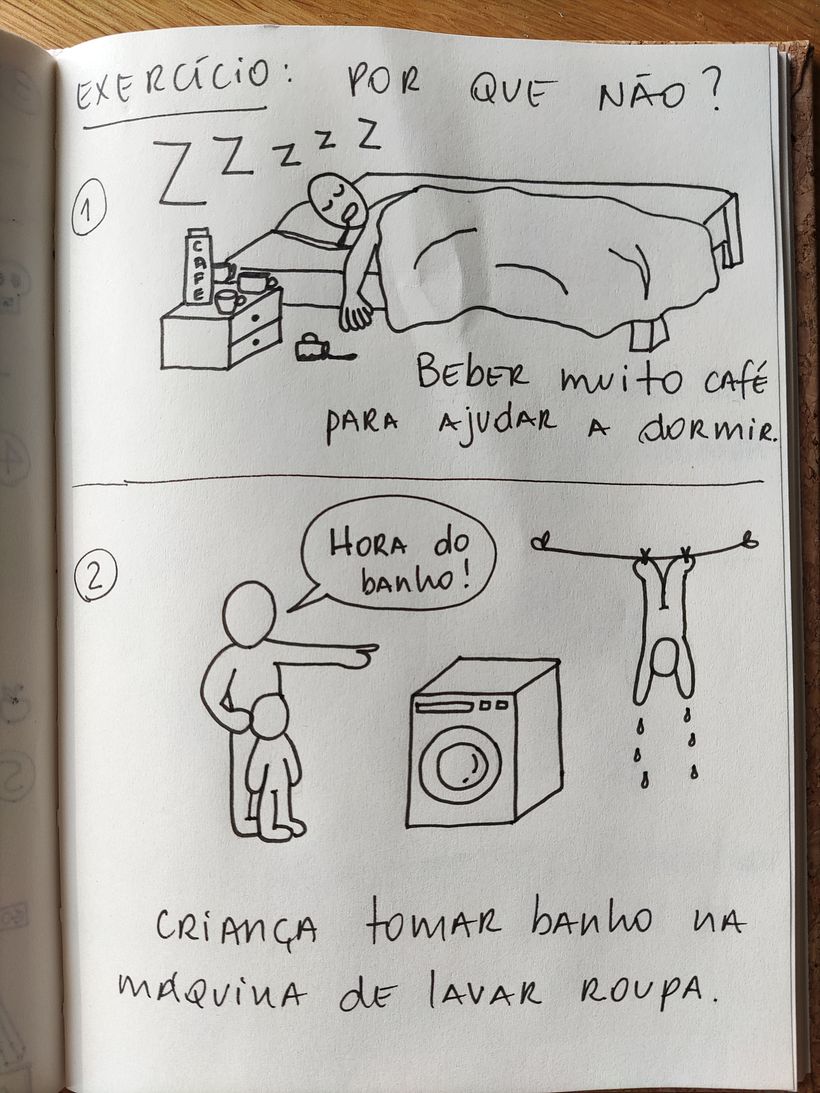 EXERCÍCIO: POR QUE NÃO?
Z Z Z Z Z
1
CAFE
BEBER muito café
PARA AJUDAR A DORMIR.
2
HORA do
banho!
CRIANÇA tomAR banho nA
mÁQuinA dE lAVAR ROUPA.